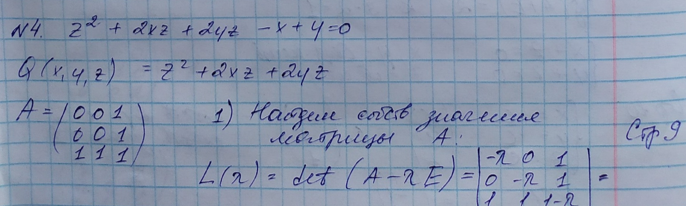 №4. z² + 2xz + 2yz - x + y = 0
Q(x, y, z) = z² + 2xz + 2yz
A = (0 0 1
0 0 1
1 1 1)
1) Найдем собств значения
матрицы A:
Стр 9
L(λ) = det (A - λE) = |-λ 0 1
0 -λ 1
1 1 1-λ| =